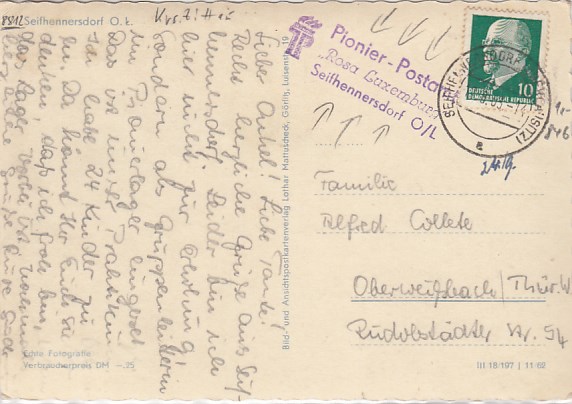 8812 Seifhennersdorf O. L.
Lieber Onkel! Liebe Tante!
Recht herzliche Grüße aus Seif-
hennersdorf. Leider bin ich
hier nicht zur Erholung
sondern als Gruppenleiterin
im Pionierlager eingesetzt
Das ist unser Praktikum
Ich habe 24 Kinder zu
Da könnt Ihr Euch
denken, daß ich froh bin,
das Lager vorbei ist
Viele Grüße
Echte Fotografie
Verbraucherpreis DM -.25
Bild- und Ansichtspostkartenverlag Lothar Mattuscheck, Görlitz, Luisenstr. 19
Pionier-Postamt
"Rosa Luxemburg"
Seifhennersdorf O/L
10
DEUTSCHE
DEMOKRATISCHE REPUBLIK
SEIFHENNERSDORF
a
Familie
Alfred Collete
Oberweißbach/Thür. W
Rudolstädter Str. 54
III 18/197 | 11/62